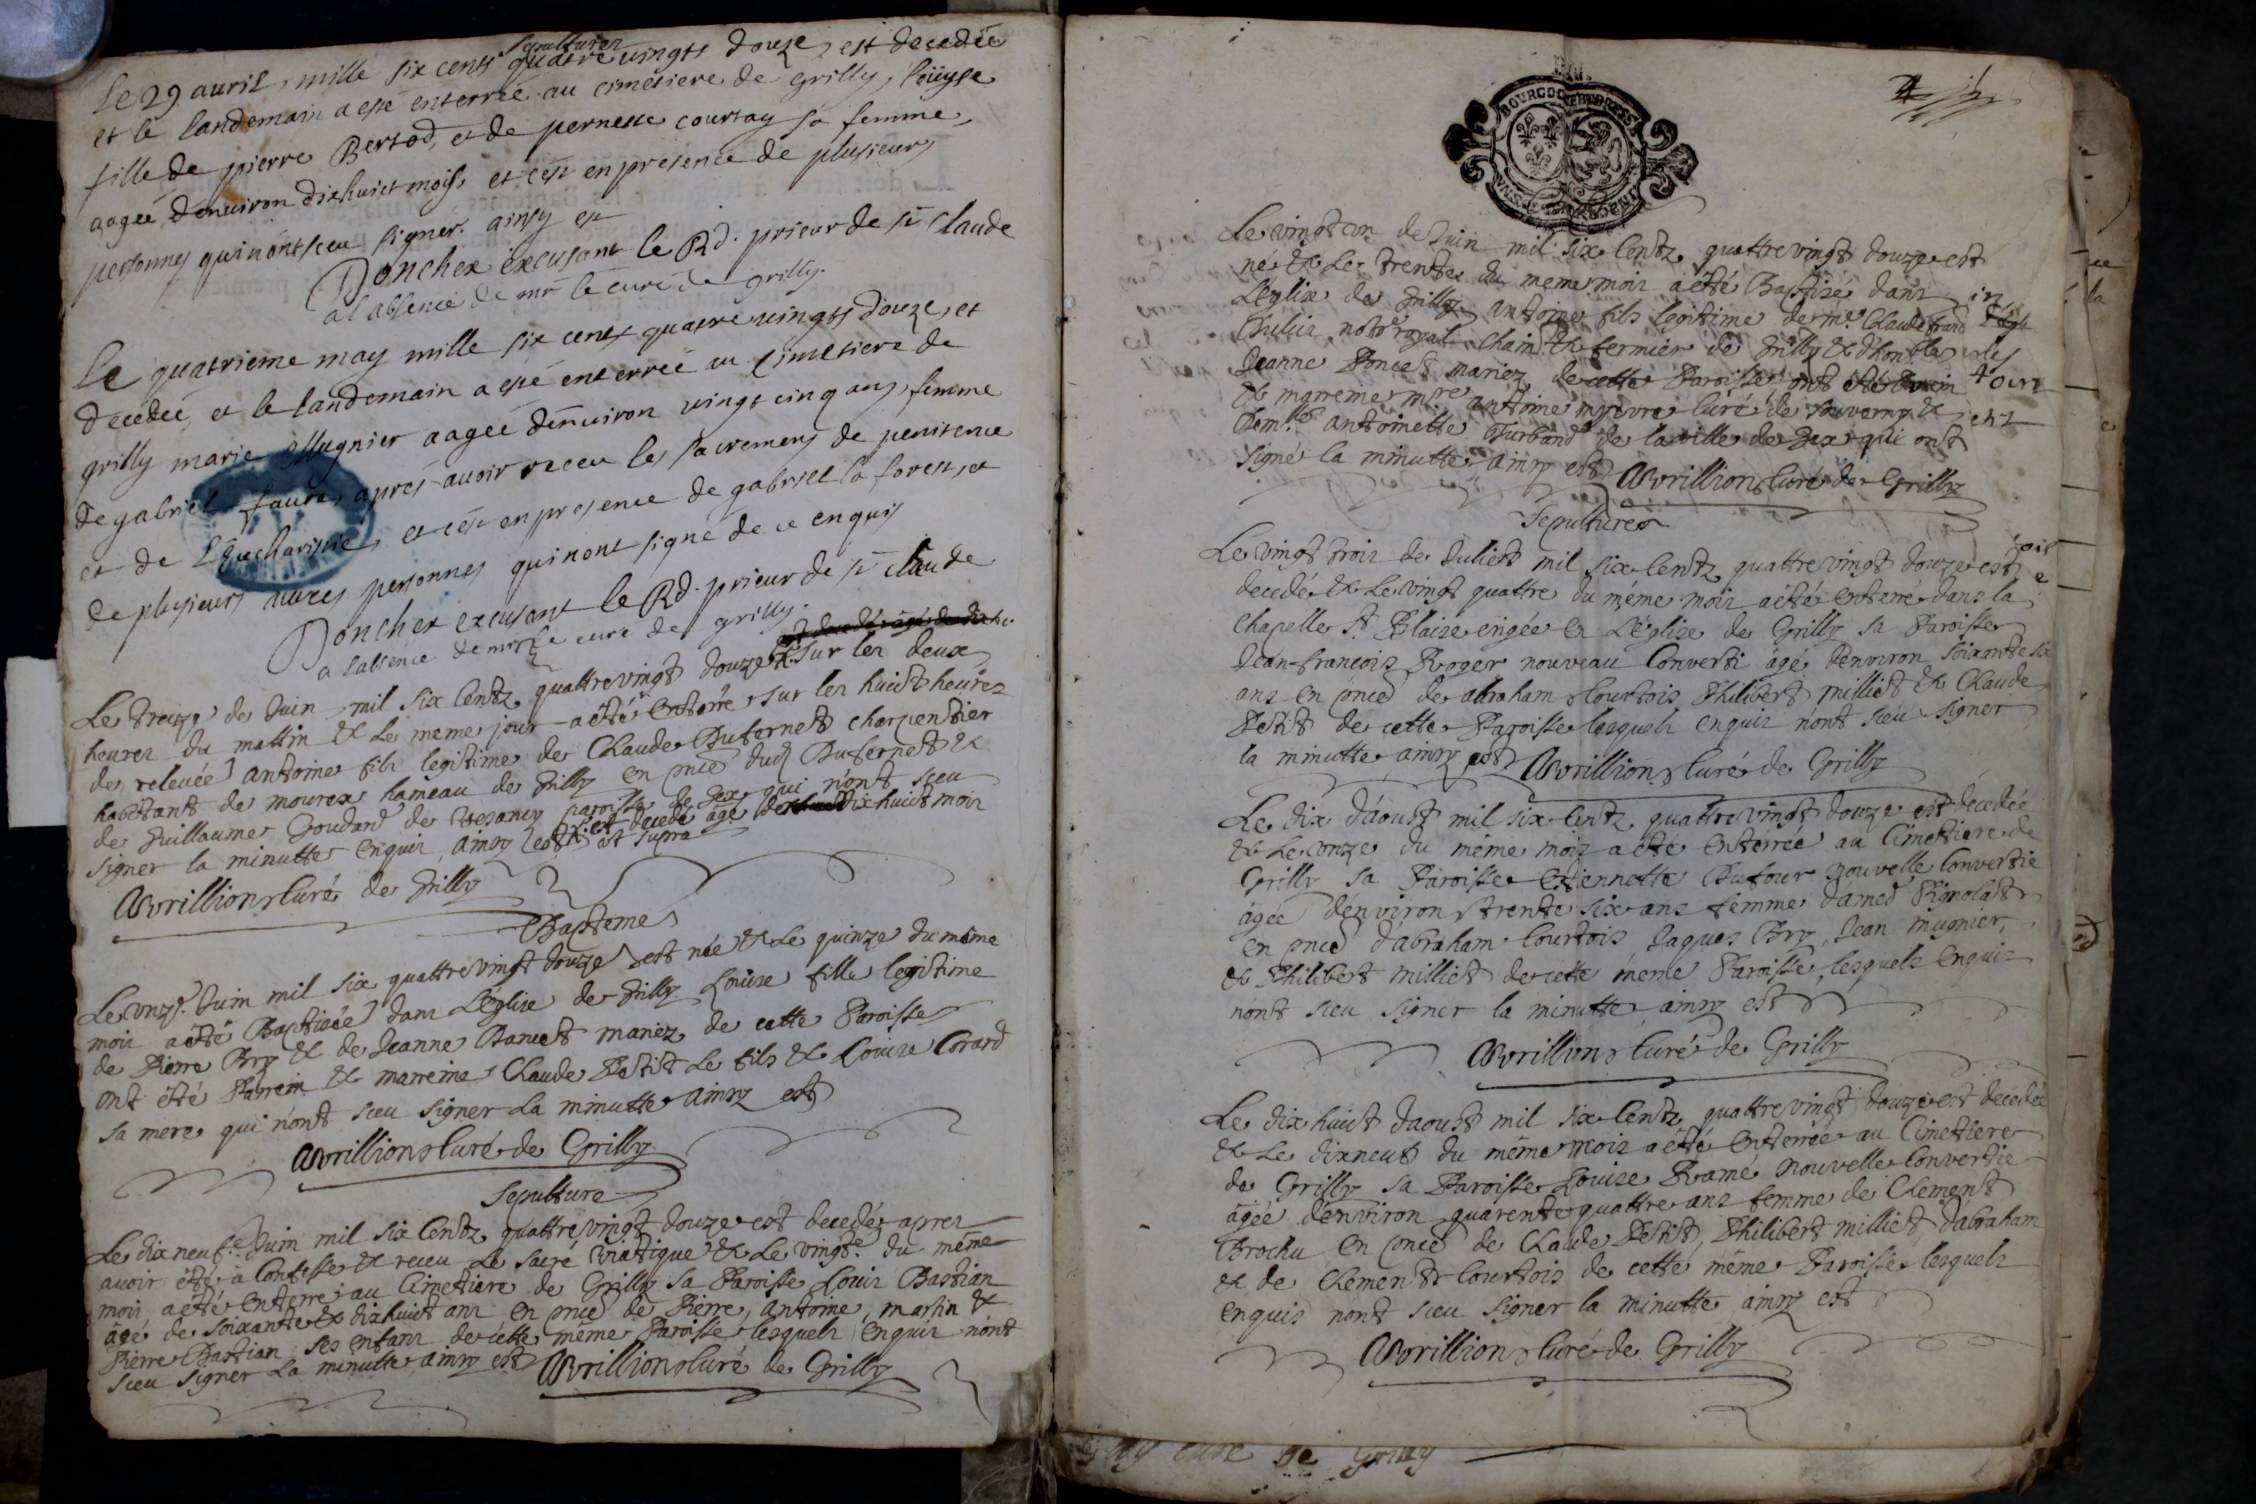 Sepultures
Le 29 auril, mille six cents quatre vingts douze, est decedée
et le landemain a esté enterrée au cimetiere de grilly, loüyse
fille de pierre Bertod, et de pernette courtay sa femme,
aagée denuiron dixhuict mois, et cest en presence de plusieurs
personnes qui nont sceu signer. ainsy est
Donchex excusant le Rd. prieur de st claude
a l absence de mr le curé de grilly.
Le quatrieme may mille six cents quatre vingts douze, et
decedée, et le landemain a esté enterrée au cimetiere de
grilly marie Mugnier aagée denuiron vingt cinq ans, femme
de gabriel faure, aprés auoir receu les sacremens de penitence
et de l Eucharistie, et cest en presence de gabriel la forest, et
de plusieurs autres personnes qui nont signé de ce enquis
Donchex excusant le Rd. prieur de st claude
a labsence de mr le curé de grilly.
Le treize de Juin mil six Centz quattrevingt douze sur les deux
heures du mattin & Le meme jour a été Enterré sur les huict heures
de relevée antoine fils legitime de Claude Dufernet charpentier
habitant de mourex hameau de Grilly en pnce dud Dufernet &
de Guillaume Goudard de Vesancy paroisse de Gex qui n'ont sceu
signer la minutte enquis, ainsy est est decedé agé de dixhuict mois
ut supra
Avrillion Curé de Grilly
Bapteme
Le onze. Juin mil six quattrevingt douze est née & Le quinze du même
mois a été Baptisée dans L'église de Grilly Loüise fille legitime
de Pierre Bry & de Jeanne Bancet mariez de cette Paroisse
ont été Parrein & marreine Claude Petit Le fils & Louise Corard
sa mere qui n'ont sceu signer La minutte ainsy est
Avrillion Curé de Grilly
Sepulture
Le dix neufe. Juin mil six Centz quattrevingt douze est decedé apres
avoir été a Confesse & receu Le sacré viatique & Le vingte. du même
mois a été Enterré au Cimetiere de Grilly sa Paroisse Louis Bastian
âgé de soixante & dixhuict ans en pnce de Pierre, antoine, martin &
Pierre Bastian ses enfans de cette même Paroisse lesquels enquis n'ont
sceu signer La minutte ainsy est Avrillion Curé de Grilly
BOURGOGNE
Le vingt un de Juin mil six Centz quattrevingt douze est
né & Le trente du meme mois a été Baptizé dans
L'eglize de Grilly antoine fils legitime de me. Claude
notre royal & fermier de Grilly & d'honble
Jeanne Poncet mariez de cette Paroisse ont été Parrein
& marreine mre antoine curé de Sauverny &
Demlle antoinette Turband de la ville de Gex qui ont
signé la minutte ainsy est Avrillion Curé de Grilly
Sepultures
Le vingt trois de Juliet mil six Centz quattrevingt douze est
decedé & Le vingt quattre du même mois a été enterré dans la
chapelle St Blaize erigée en L'église de Grilly sa Paroisse
Jean-françois Roger nouveau Converti âgé d'environ soixante six
ans en pnce de abraham Courtois, Philibert milliet & Claude
Petit de cette Paroisse lesquels enquis n'ont sceu signer
la minutte ainsy est Avrillion Curé de Grilly
Le dix d'aoust mil six Centz quattrevingt douze est décedée
& Le onze du même mois a été Enterrée au Cimetiere de
Grilly sa Paroisse Etiennette Dufour nouvelle Convertie
âgée d'environ trente six ans femme d'amed Pignolat
en pnce d'abraham Courtois, Jaques Bry, Jean mugnier,
& Philibert milliet de cette même Paroisse, lesquels Enquis
n'ont sceu signer la minutte ainsy est
Avrillion Curé de Grilly
Le dix huict d'aoust mil six Centz quattrevingt douze est decedée
& Le dixneuf du même mois a été Enterrée au Cimetiere
de Grilly sa Paroisse Louise Ramé nouvelle Convertie
âgée d'environ quarente quattre ans femme de Clement
Brochu en pnce de Claude Petit, Philibert milliet, d'abraham
& de Clement Courtois de cette même Paroisse lesquels
enquis n'ont sceu signer la minutte ainsy est
Avrillion Curé de Grilly
curé de Grilly